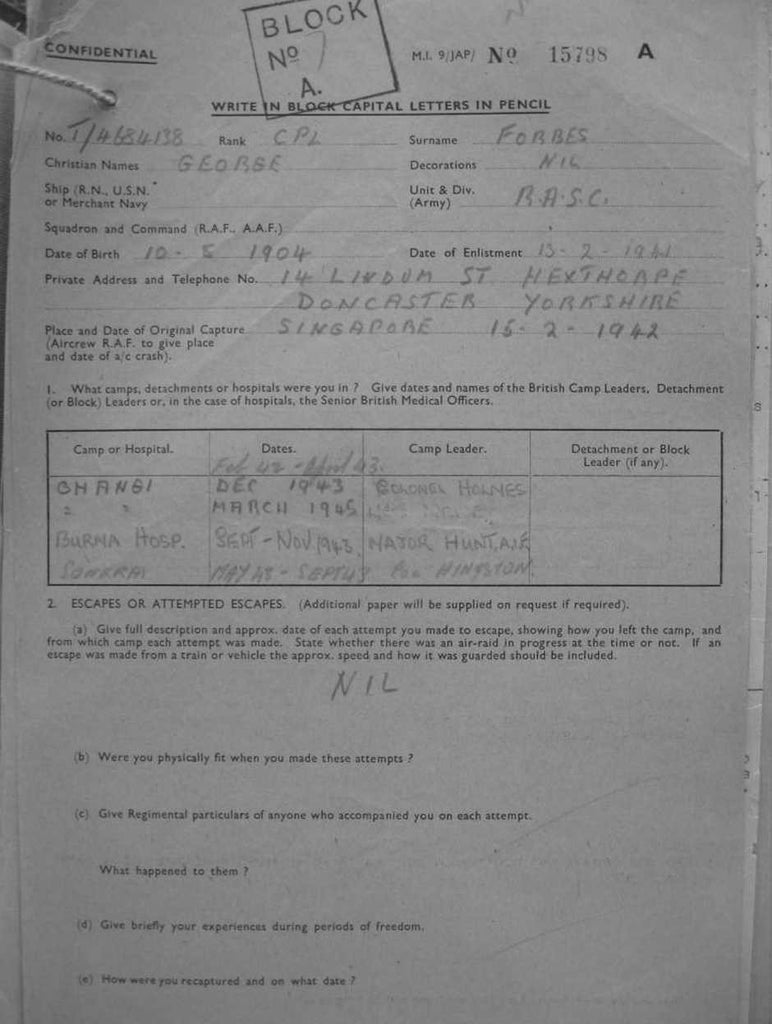 BLOCK
Nº 1
A.
CONFIDENTIAL
M.I. 9/JAP/ Nº 15798 A
WRITE IN BLOCK CAPITAL LETTERS IN PENCIL
No. T/4684138 Rank CPL Surname FORBES
Christian Names GEORGE Decorations NIL
Ship (R.N., U.S.N. or Merchant Navy Unit & Div. (Army) R.A.S.C.
Squadron and Command (R.A.F., A.A.F.)
Date of Birth 10 - 5 1904 Date of Enlistment 13 - 2 - 1941
Private Address and Telephone No. 14 LINDUM ST HEXTHORPE
DONCASTER YORKSHIRE
Place and Date of Original Capture SINGAPORE 15 - 2 - 1942
(Aircrew R.A.F. to give place
and date of a/c crash).
1. What camps, detachments or hospitals were you in ? Give dates and names of the British Camp Leaders, Detachment
(or Block) Leaders or, in the case of hospitals, the Senior British Medical Officers.
Camp or Hospital. Dates. Camp Leader. Detachment or Block
Leader (if any).
Feb 42 - April 43.
CHANGI DEC 1943 COLONEL HOLMES
" " MARCH 1945
BURMA HOSP. SEPT - NOV 1943 MAJOR HUNT. A.I.F
SONKRAI MAY 43 - SEPT 43 HINGSTON.
2. ESCAPES OR ATTEMPTED ESCAPES. (Additional paper will be supplied on request if required).
(a) Give full description and approx. date of each attempt you made to escape, showing how you left the camp, and
from which camp each attempt was made. State whether there was an air-raid in progress at the time or not. If an
escape was made from a train or vehicle the approx. speed and how it was guarded should be included.
NIL
(b) Were you physically fit when you made these attempts ?
(c) Give Regimental particulars of anyone who accompanied you on each attempt.
What happened to them ?
(d) Give briefly your experiences during periods of freedom.
(e) How were you recaptured and on what date ?